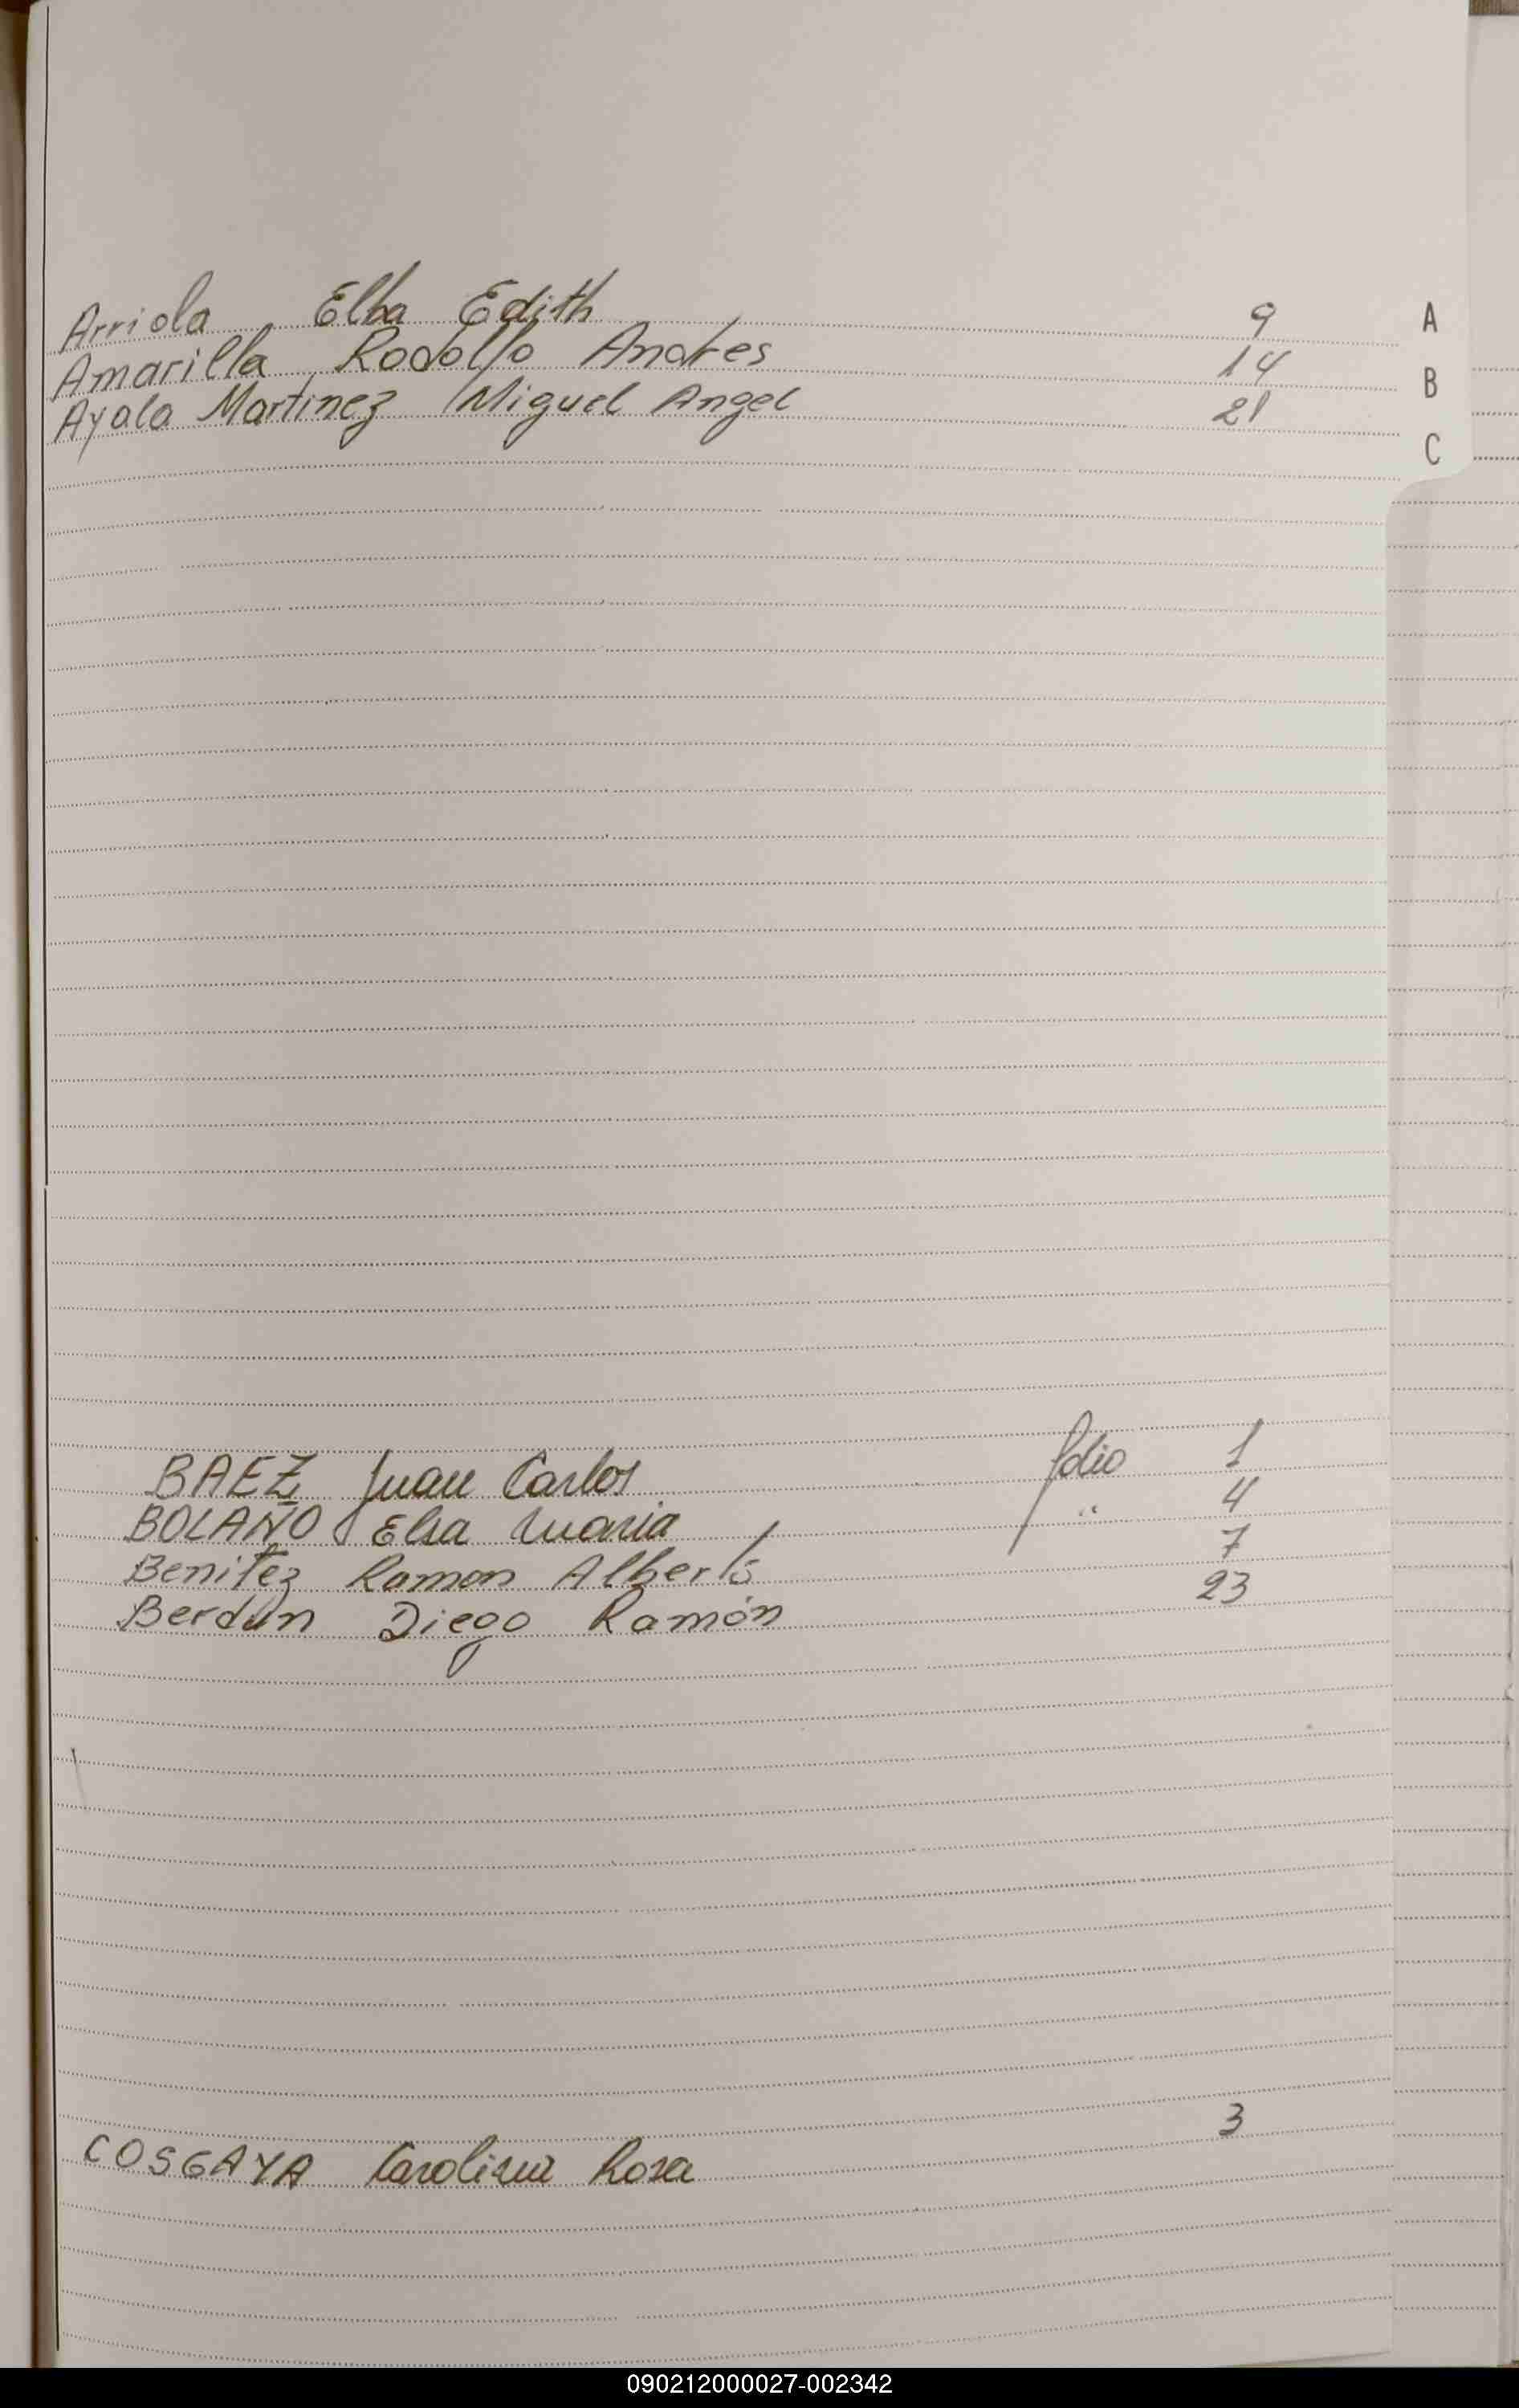 Arriola Elba Edith 9
Amarilla Rodolfo Andres 14
Ayala Martinez Miguel Angel 21
A
B
C
BAEZ Juan Carlos folio 1
BOLAÑO Elsa Maria " 4
Benitez Ramon Alberto 7
Berdun Diego Ramón 23
COSGAYA Carolina Rosa 3
090212000027-002342